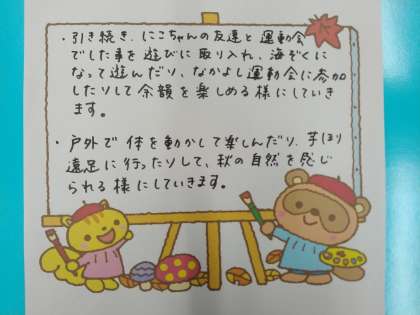 ・引き続き、にこちゃんの友達と運動会
でした事を遊びに取り入れ、海ぞくに
なって遊んだり、なかよし運動会に参加
したりして余韻を楽しめる様にしていき
ます。
・戸外で体を動かして楽しんだり、芋ほり
遠足に行ったりして、秋の自然を感じ
られる様にしていきます。